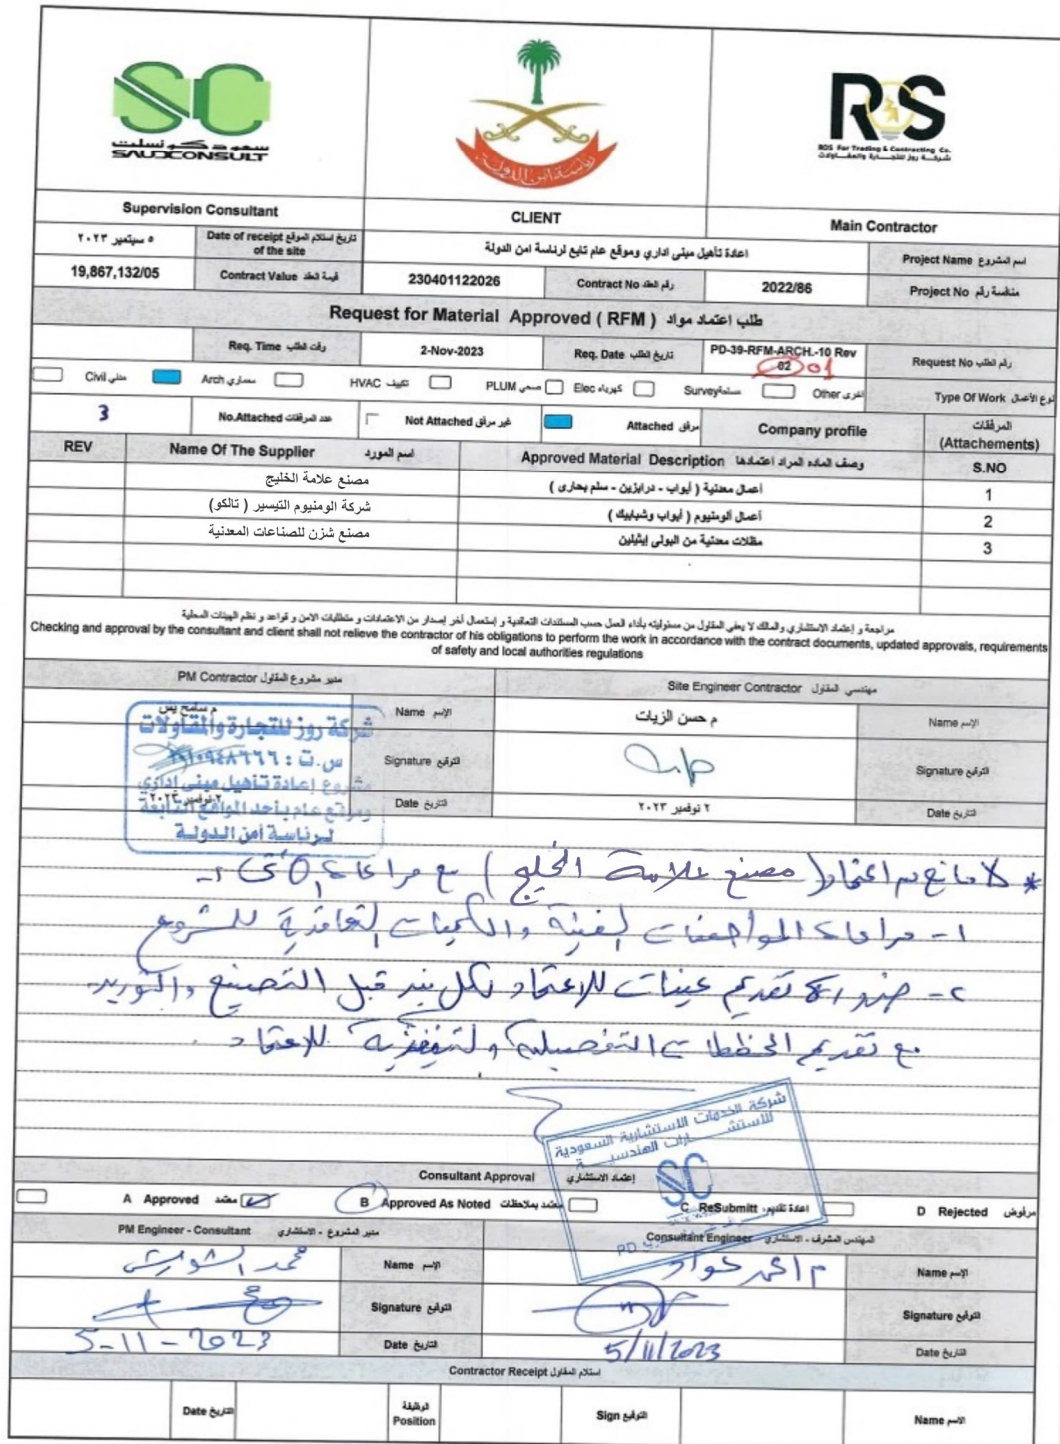 سعودكونسلت
SAUDCONSULT
رئاسة امن الدولة
ROS
ROS For Trading & Contracting Co.
شركة روز للتجارة والمقاولات
Supervision Consultant
CLIENT
Main Contractor
٥ سبتمبر ٢٠٢٣ Date of receipt تاريخ استلام الموقع of the site اعادة تأهيل مبنى اداري وموقع عام تابع لرئاسة امن الدولة Project Name اسم المشروع
19,867,132/05 Contract Value قيمة العقد 230401122026 Contract No رقم العقد 2022/86 Project No منافسة رقم
Request for Material Approved ( RFM ) طلب اعتماد مواد
Req. Time وقت الطلب 2-Nov-2023 Req. Date تاريخ الطلب PD-39-RFM-ARCH.-10 Rev 02 01 Request No رقم الطلب
Civil مدني Arch معماري HVAC تكييف PLUM صحي Elec كهرباء Survey مساحة Other اخرى Type Of Work نوع الأعمال
3 No.Attached عدد المرفقات Not Attached غير مرفق Attached مرفق Company profile المرفقات (Attachements)
REV Name Of The Supplier اسم المورد Approved Material Description وصف الماده المراد اعتمادها S.NO
مصنع علامة الخليج أعمال معدنية ( أبواب - درابزين - سلم بحارى ) 1
شركة الومنيوم التيسير ( تالكو) أعمال ألومنيوم ( أبواب وشبابيك ) 2
مصنع شزن للصناعات المعدنية مظلات معدنية من البولى إيثيلين 3
مراجعة و إعتماد الاستشاري والمالك لا يعفي المقاول من مسئوليته بأداء العمل حسب المستندات التعاقدية و إستعمال أخر إصدار من الاعتمادات و متطلبات الامن و قواعد و نظم الهيئات المحلية
Checking and approval by the consultant and client shall not relieve the contractor of his obligations to perform the work in accordance with the contract documents, updated approvals, requirements
of safety and local authorities regulations
PM Contractor مدير مشروع المقاول Site Engineer Contractor مهندسي المقاول
م سامح يس Name الإسم م حسن الزيات Name الإسم
Signature التوقيع Signature التوقيع
٢ نوفمبر ٢٠٢٣ Date التاريخ ٢ نوفمبر ٢٠٢٣ Date التاريخ
شركة روز للتجارة والمقاولات
س.ت :
مشروع إعادة تأهيل مبنى إداري
وموقع عام بأحد المواقع التابعة
لرئاسة أمن الدولة
* لا مانع من اعتماد ( مصنع علامة الخليج ) مع مراعاة الآتى :-
١- مراعاة المواصفات الفنية والكميات التعاقدية للمشروع
٢- ضرورة تقديم عينات للاعتماد لكل بند قبل التصنيع والتوريد
مع تقديم المخططات التفصيلية والتنفيذية للاعتماد .
شركة الخدمات الاستشارية السعودية
للاستشارات الهندسية
SC
Consultant Approval إعتماد الاستشاري
A Approved معتمد B Approved As Noted معتمد بملاحظات C ReSubmitt اعادة تقديم D Rejected مرفوض
PM Engineer - Consultant مدير المشروع - الاستشاري Consultant Engineer المهندس المشرف - الاستشاري
Name الإسم Name الإسم
Signature التوقيع Signature التوقيع
5-11-2023 Date التاريخ 5/11/2023 Date التاريخ
Contractor Receipt استلام المقاول
Date التاريخ Position الوظيفة Sign التوقيع Name الاسم